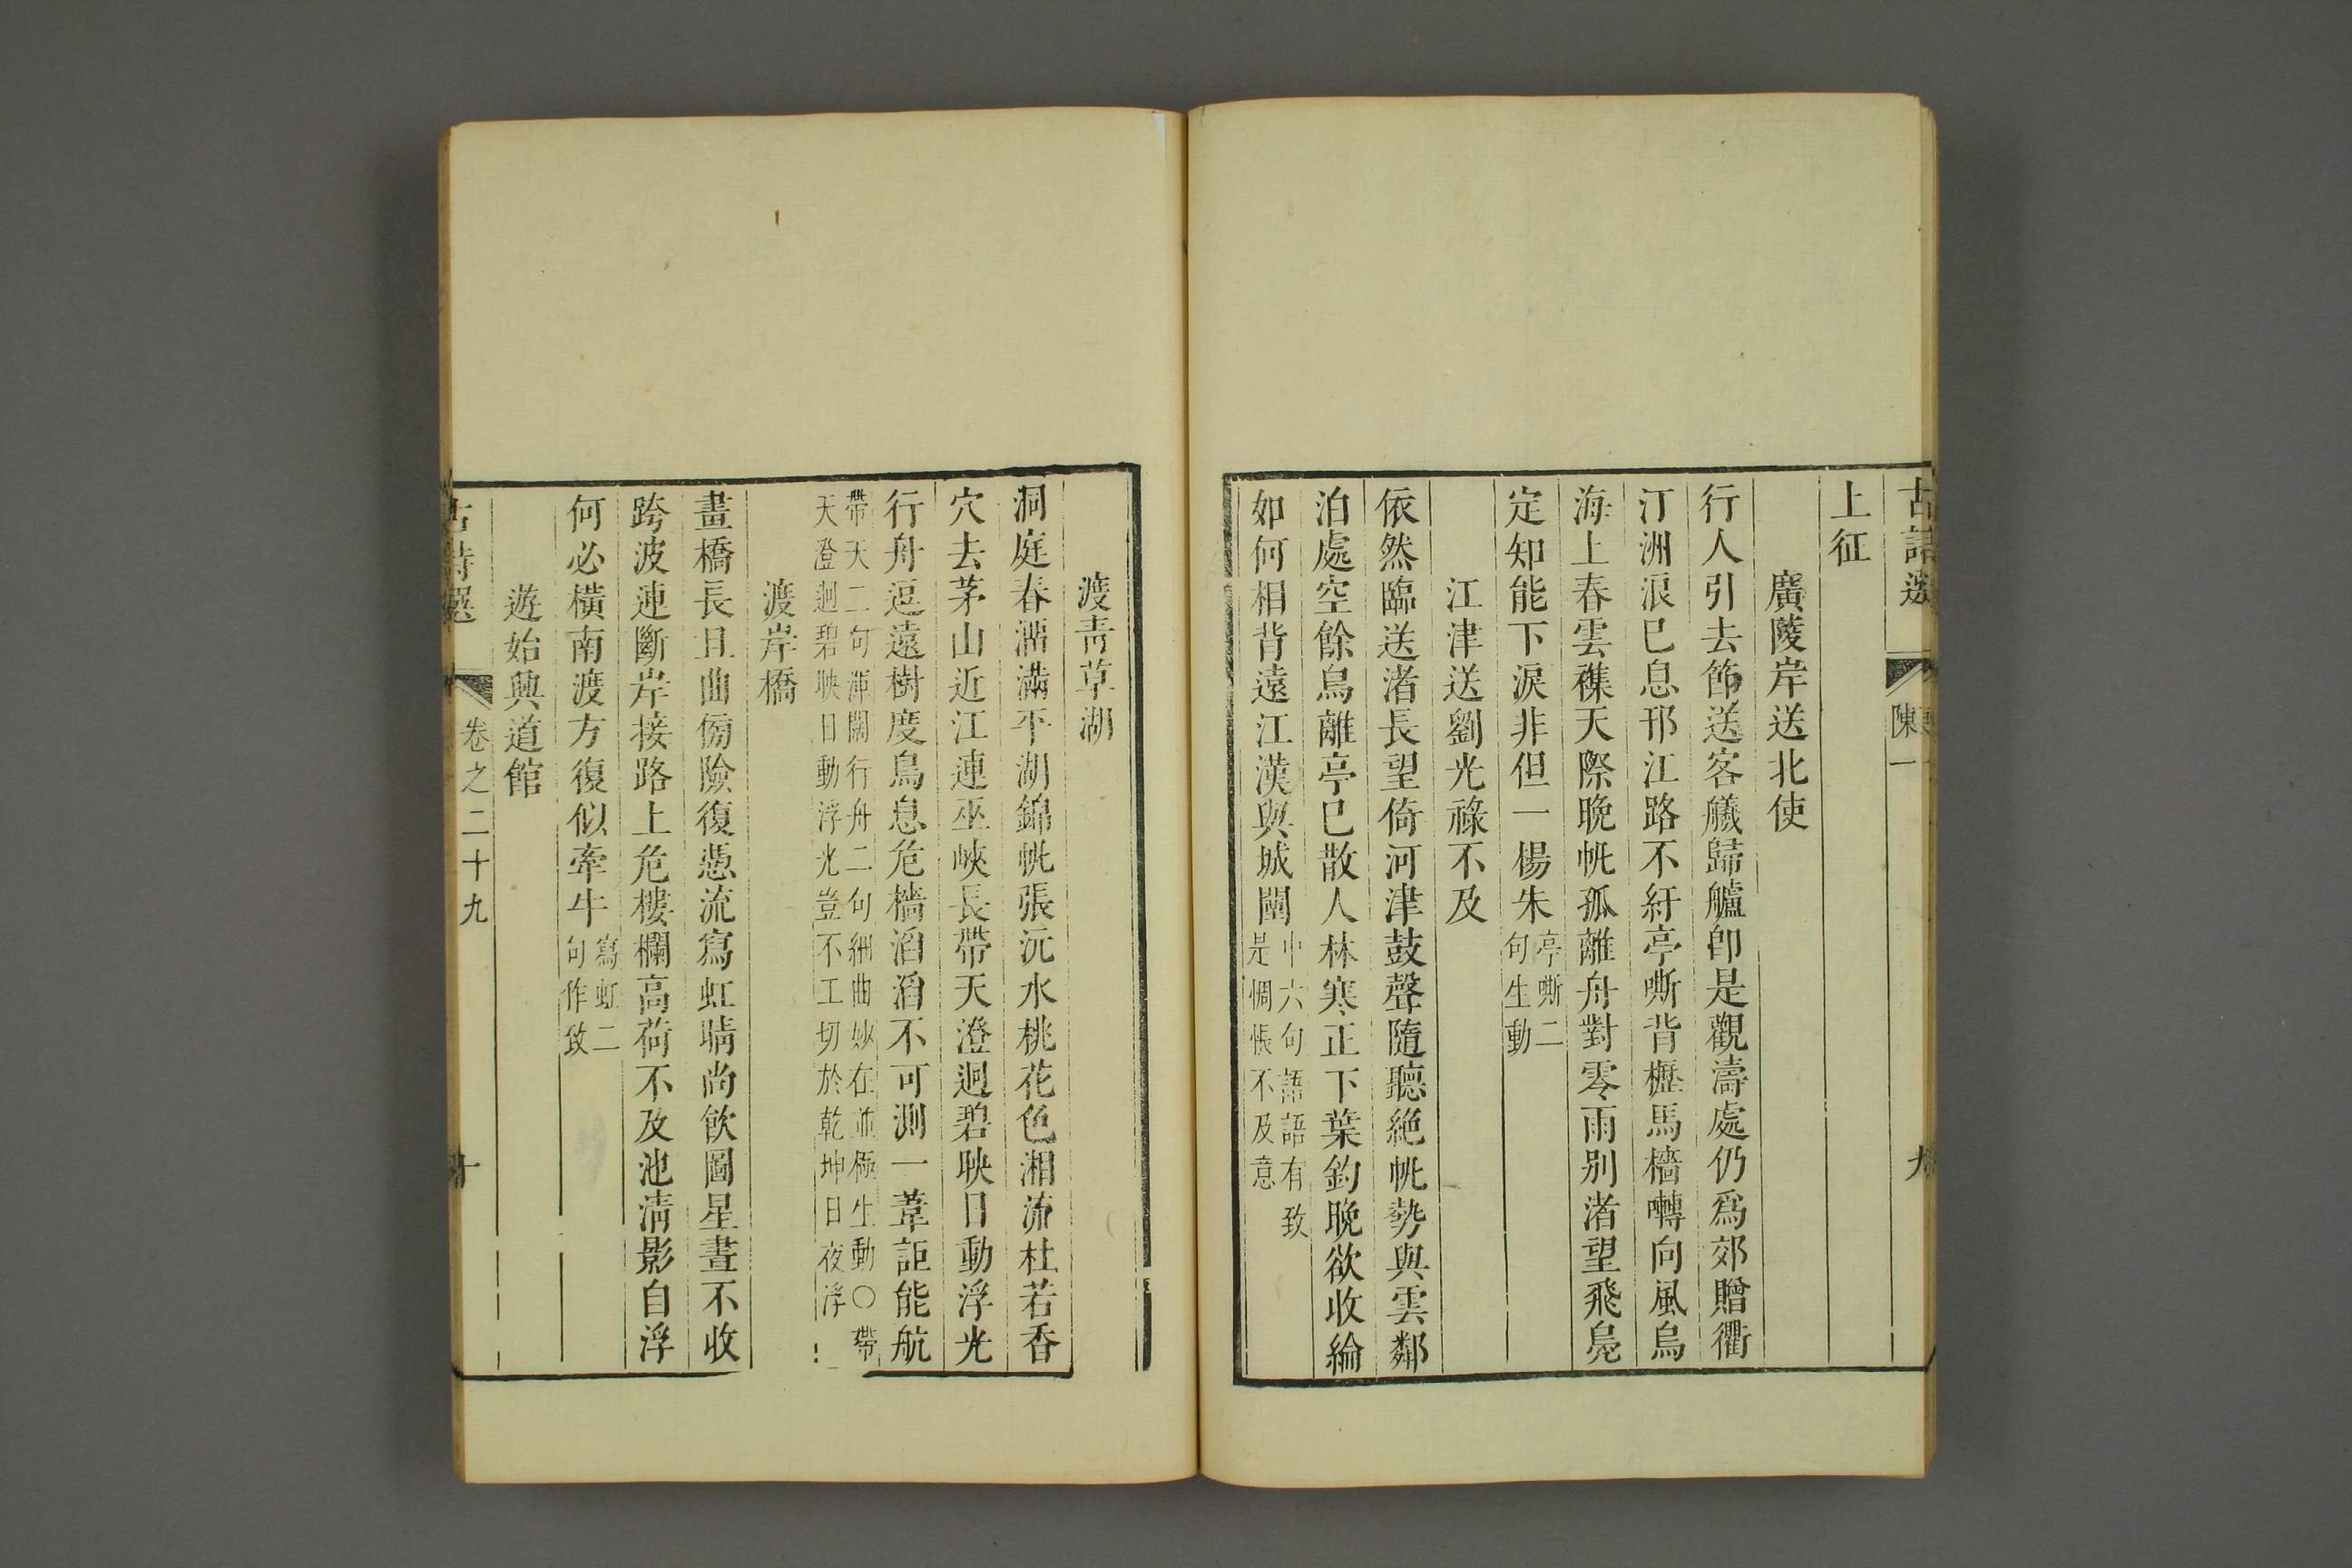 古詩選
陳一
九
上征
廣陵岸送北使
行人引去節送客艤歸艫卽是觀濤處仍爲郊贈衢
汀洲浪已息邗江路不紆亭嘶背櫪馬檣囀向風烏
海上春雲襍天際晚帆孤離舟對零雨別渚望飛鳧
定知能下淚非但一楊朱
亭嘶二
句生動
江津送劉光祿不及
依然臨送渚長望倚河津鼓聲隨聽絕帆勢與雲鄰
泊處空餘鳥離亭已散人林寒正下葉釣晚欲收綸
如何相背遠江漢與城闉
中六句語語有致
是惆悵不及意
渡青草湖
洞庭春溜滿平湖錦帆張沅水桃花色湘流杜若香
穴去茅山近江連巫峽長帶天澄迥碧映日動浮光
行舟逗遠樹度鳥息危檣滔滔不可測一葦詎能航
帶天二句渾闊行舟二句細曲妙在並極生動○帶
天澄迥碧映日動浮光豈不工切於乾坤日夜浮
渡岸橋
畫橋長且曲傍險復憑流寫虹晴尚飮圖星晝不收
跨波連斷岸接路上危樓欄高荷不及池淸影自浮
何必橫南渡方復似牽牛
寫虹二
句作致
遊始興道館
古詩選
卷之二十九
十